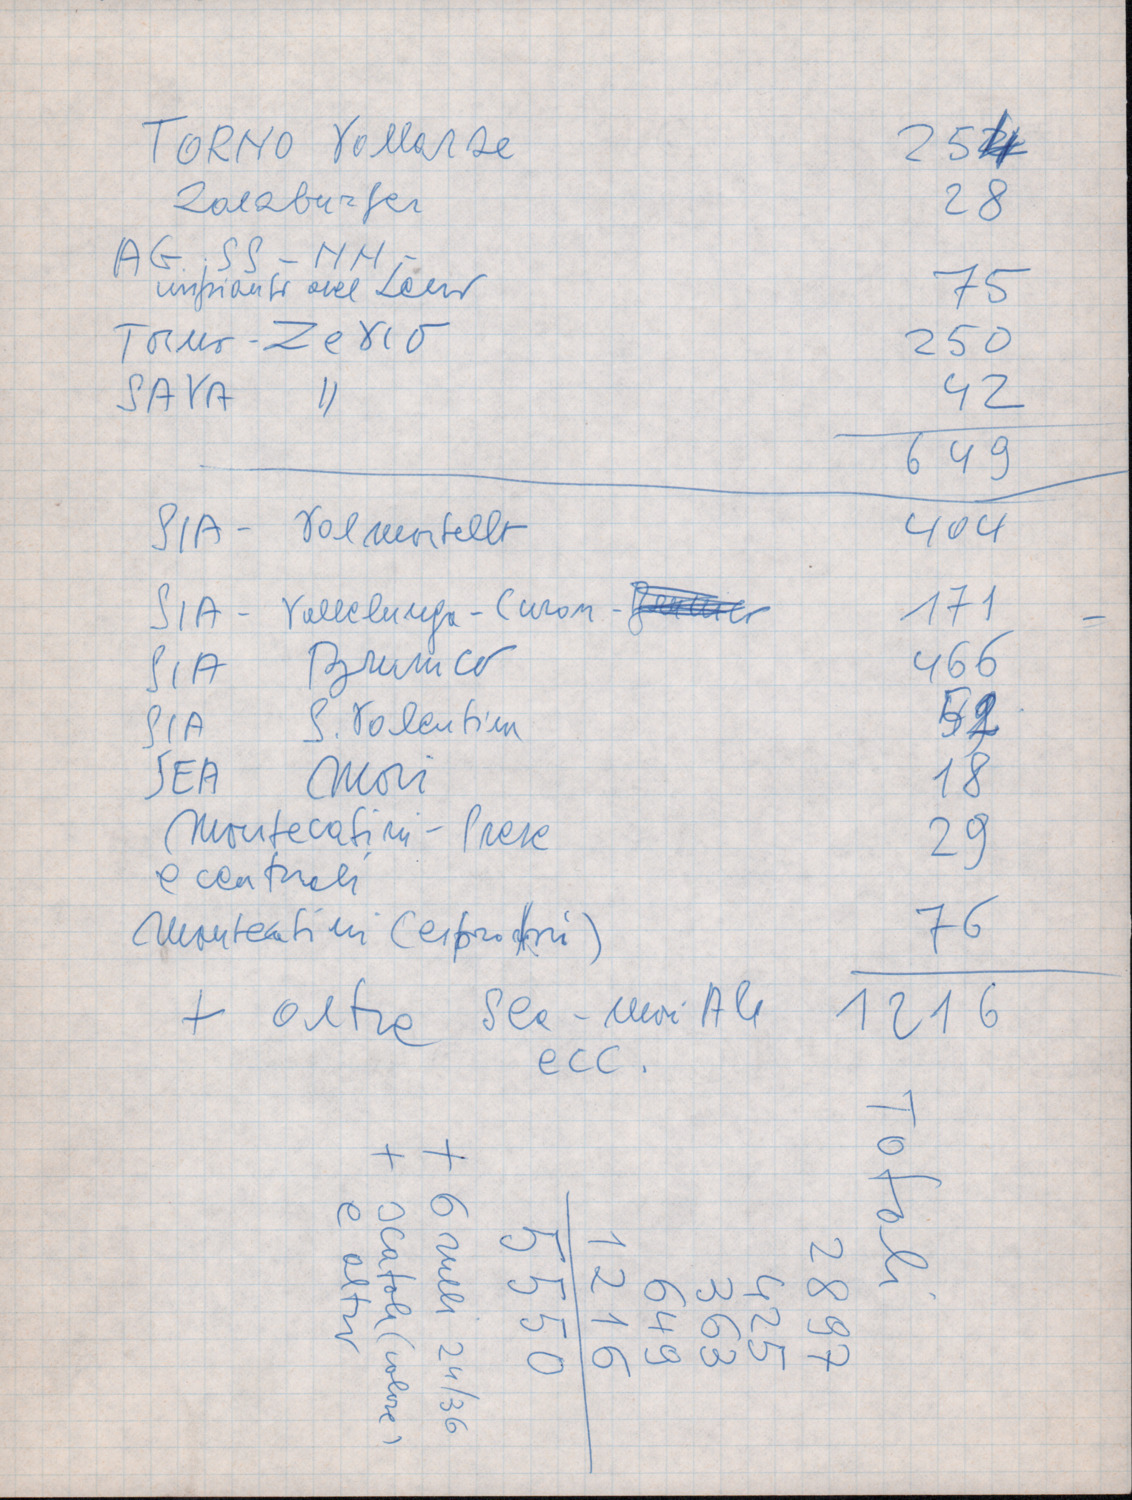 TORNO Vallarsa 254
Salzburger 28
AG. SS - MM -
impianti del Leno 75
Torno - Zevio 250
SAVA " 42
649
SIA - Valmartello 404
SIA - Vallelunga - Curon - 171 -
SIA Brunico 466
SIA S. Valentin 52
SEA Mori 18
Montecatini - Prese 29
e centrali
Montecatini (espropri) 76
+ altre Sea - Mori Ala 1216
ecc.
Totali
2897
425
363
649
1216
5550
+ 6 rulli 24/36
+ scatole (colore)
e altro